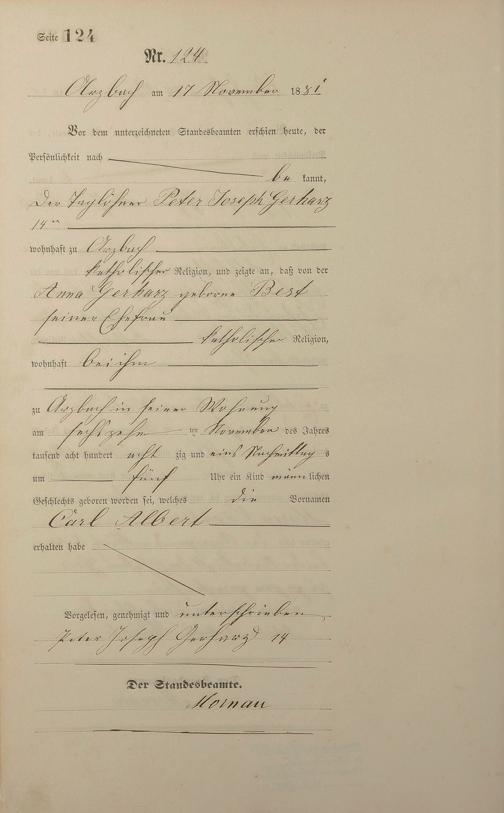 Seite 124
Nr. 124.
Arzbach am 17 November 1881
Vor dem unterzeichneten Standesbeamten erschien heute, der
Persönlichkeit nach
be kannt,
Der Taglöhner Peter Joseph Gerharz
14
wohnhaft zu Arzbach
katholischer Religion, und zeigte an, daß von der
Anna Gerharz geborne Best
seiner Ehefrau
katholischer Religion,
wohnhaft bei ihm
zu Arzbach in seiner Wohnung
am sechszehn ten November des Jahres
tausend acht hundert acht zig und eins Nachmittag s
um fünf Uhr ein Kind männlichen
Geschlechts geboren worden sei, welches die Vornamen
Carl Albert
erhalten habe
Vorgelesen, genehmigt und unterschrieben
Peter Joseph Gerharz 14
Der Standesbeamte.
Mornau